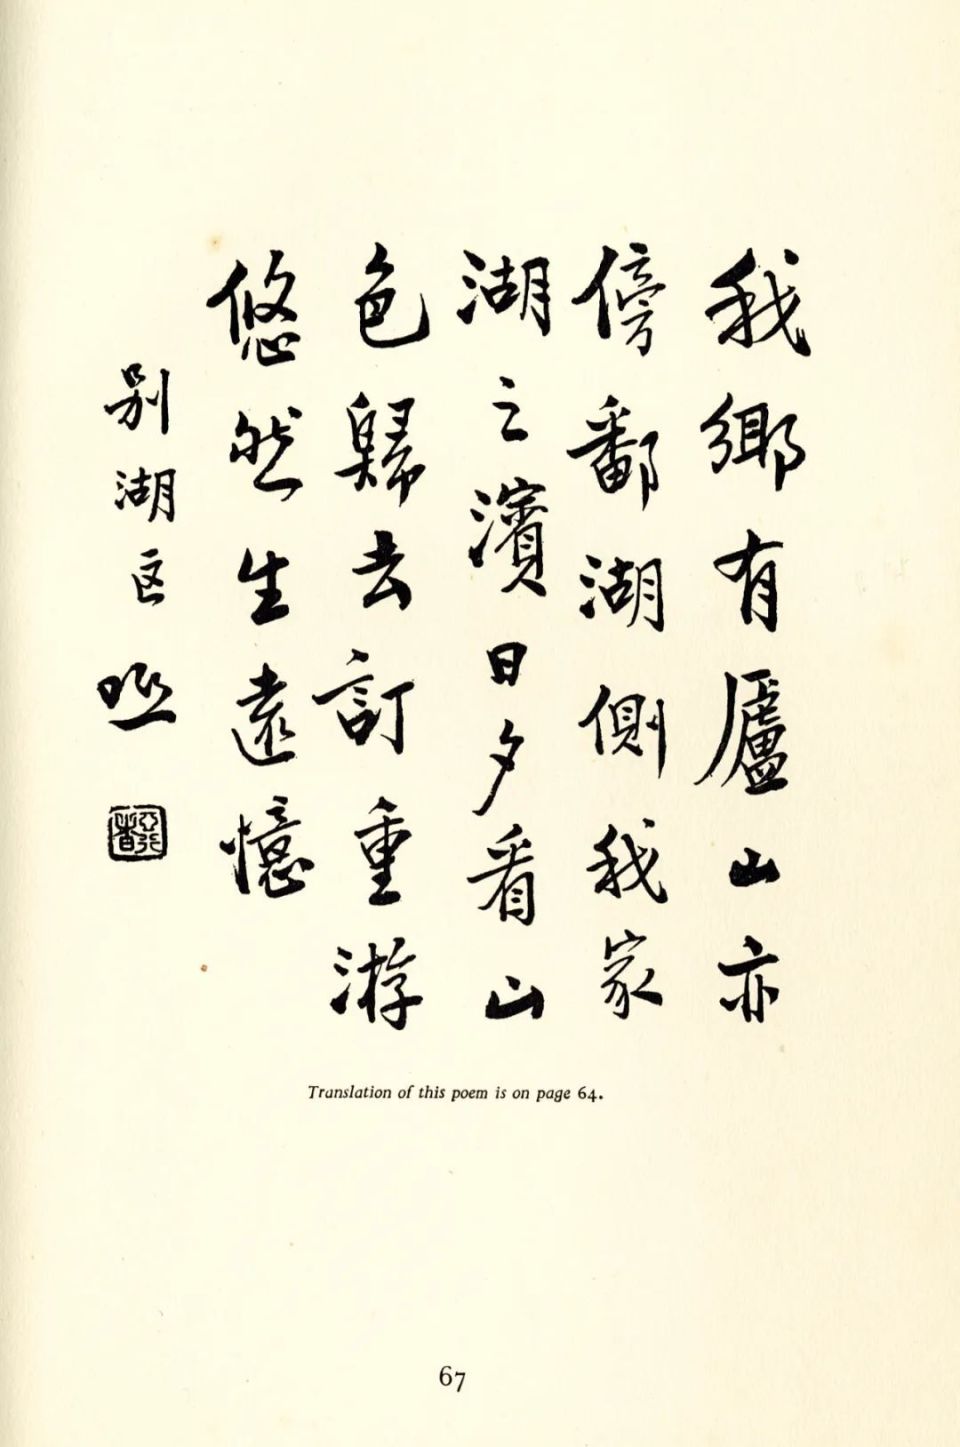 我鄉有廬山亦
傍鄱湖側我家
湖之濱日夕看山
色歸去訂重游
悠然生遠憶
别湖区
Translation of this poem is on page 64.
67